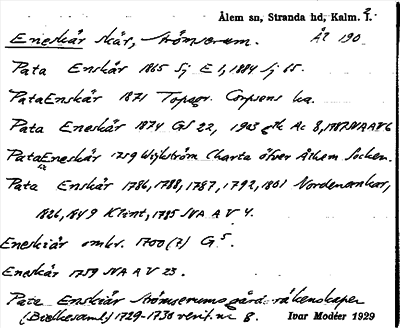 Ålem sn, Stranda hd, Kalm. l.
Eneskär skär, Strömserum. Ål 190
Pata Enskär 1865 Sj E 1, 1884 Sj 15.
Pata Enskär 1871 Topogr. Corpsens ka.
Pata Eneskär 1874 GS 22, 1903 Ac 8, 1787 NAAV6
Pata Eneskär 1759 Wijkström Charta öfver Åhlem Sochen.
Pata Enskär 1786, 1788, 1787, 1792, 1801 Nordenankar,
1826, 1849 Klint, 1785 NA A V 4.
Eneskiär omkr. 1700 (?) G 5.
Eneskär 1759 NA A V 23.
Pata Enskiär Strömserums gårds räkenskaper
(Bielkesaml.) 1729-1730 verif. nr 8. Ivar Modéer 1929